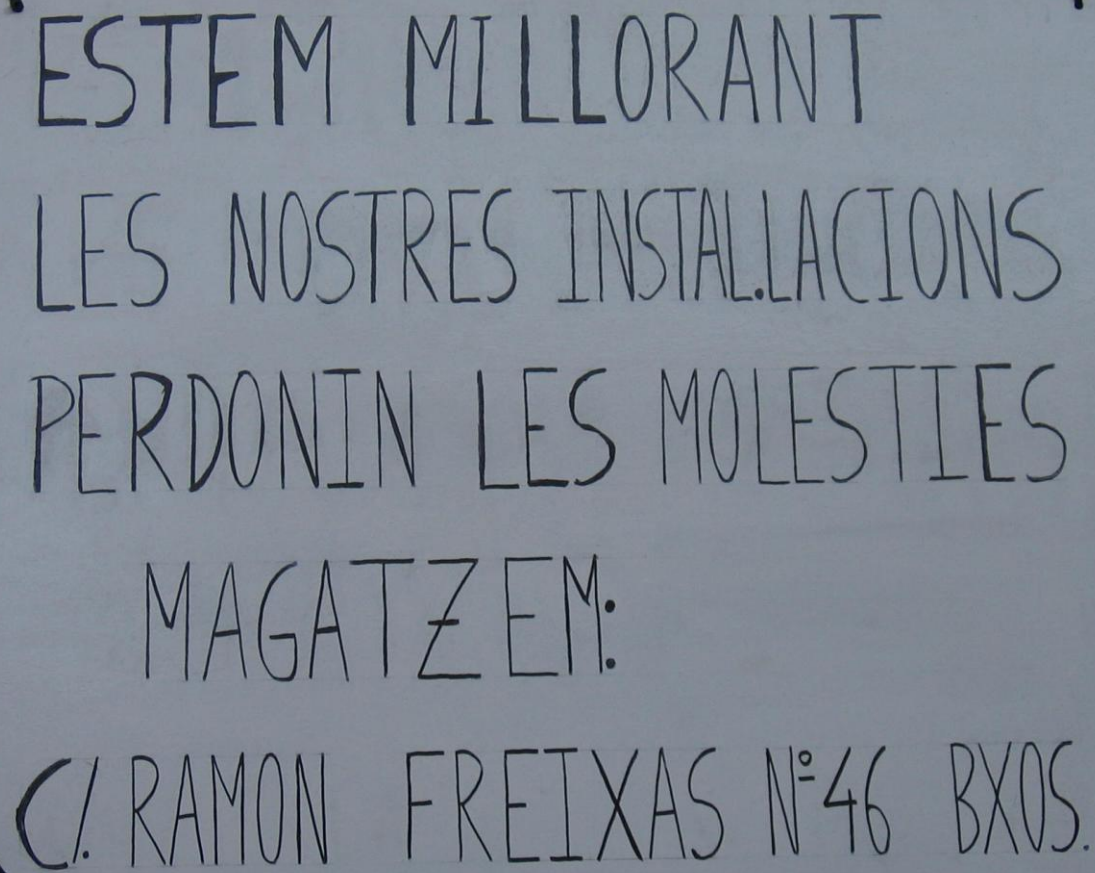 ESTEM MILLORANT
LES NOSTRES INSTAL.LACIONS
PERDONIN LES MOLESTIES
MAGATZEM:
C/. RAMON FREIXAS Nº46 BXOS.